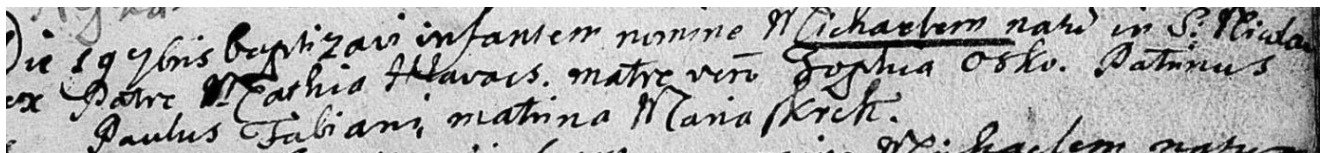 Die 19 7bris baptizavi infantem nomine Michaelem natũ in S: Nicolao
ex Patre Mathia Hlavacs. matre verò Sophia Osko. Patrinus
Paulus Fabiani, matrina Maria skrek.
Michaelem natum